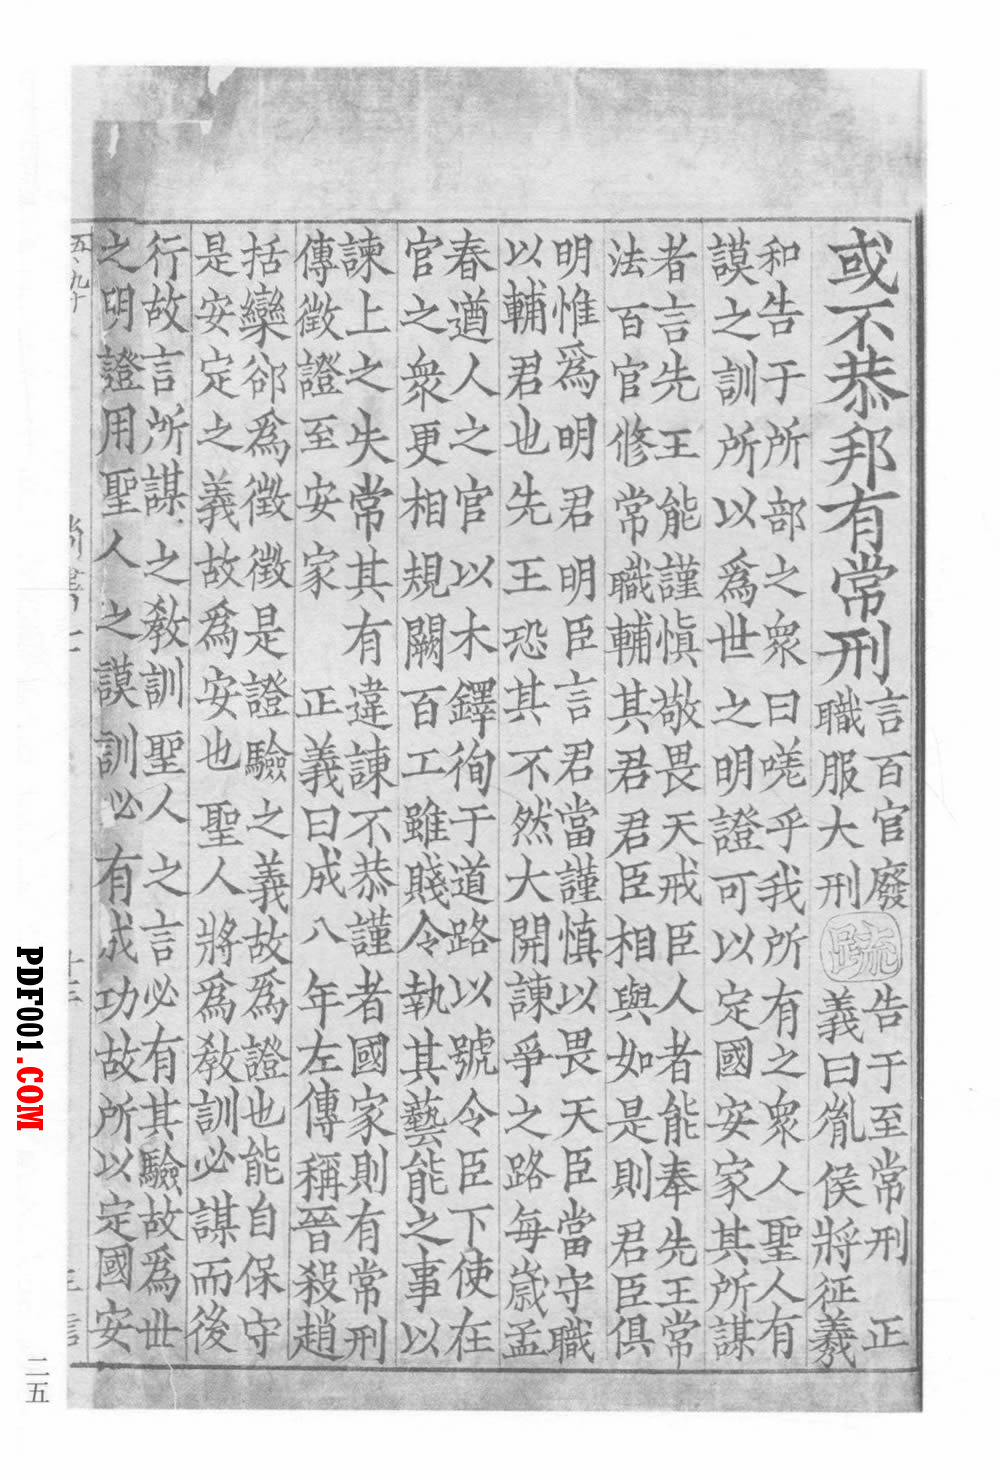 或不恭邦有常刑
言百官廢
職服大刑
疏
告于至常刑 正
義曰胤侯將征羲
和告于所部之衆曰嗟乎我所有之衆人聖人有
謨之訓所以爲世之明證可以定國安家其所謀
者言先王能謹慎敬畏天戒臣人者能奉先王常
法百官修常職輔其君君臣相與如是則君臣俱
明惟爲明君明臣言君當謹慎以畏天臣當守職
以輔君也先王恐其不然大開諫爭之路每歲孟
春遒人之官以木鐸徇于道路以號令臣下使在
官之衆更相規闕百工雖賤令執其藝能之事以
諫上之失常其有違諫不恭謹者國家則有常刑
傳徵證至安家 正義曰成八年左傳稱晉殺趙
括欒郤爲徵徵是證驗之義故爲證也能自保守
是安定之義故爲安也聖人將爲教訓必謀而後
行故言所謀之教訓聖人之言必有其驗故爲世
之明證用聖人之謨訓必有成功故所以定國安
五、九十
尚書
二五
PDF001.COM